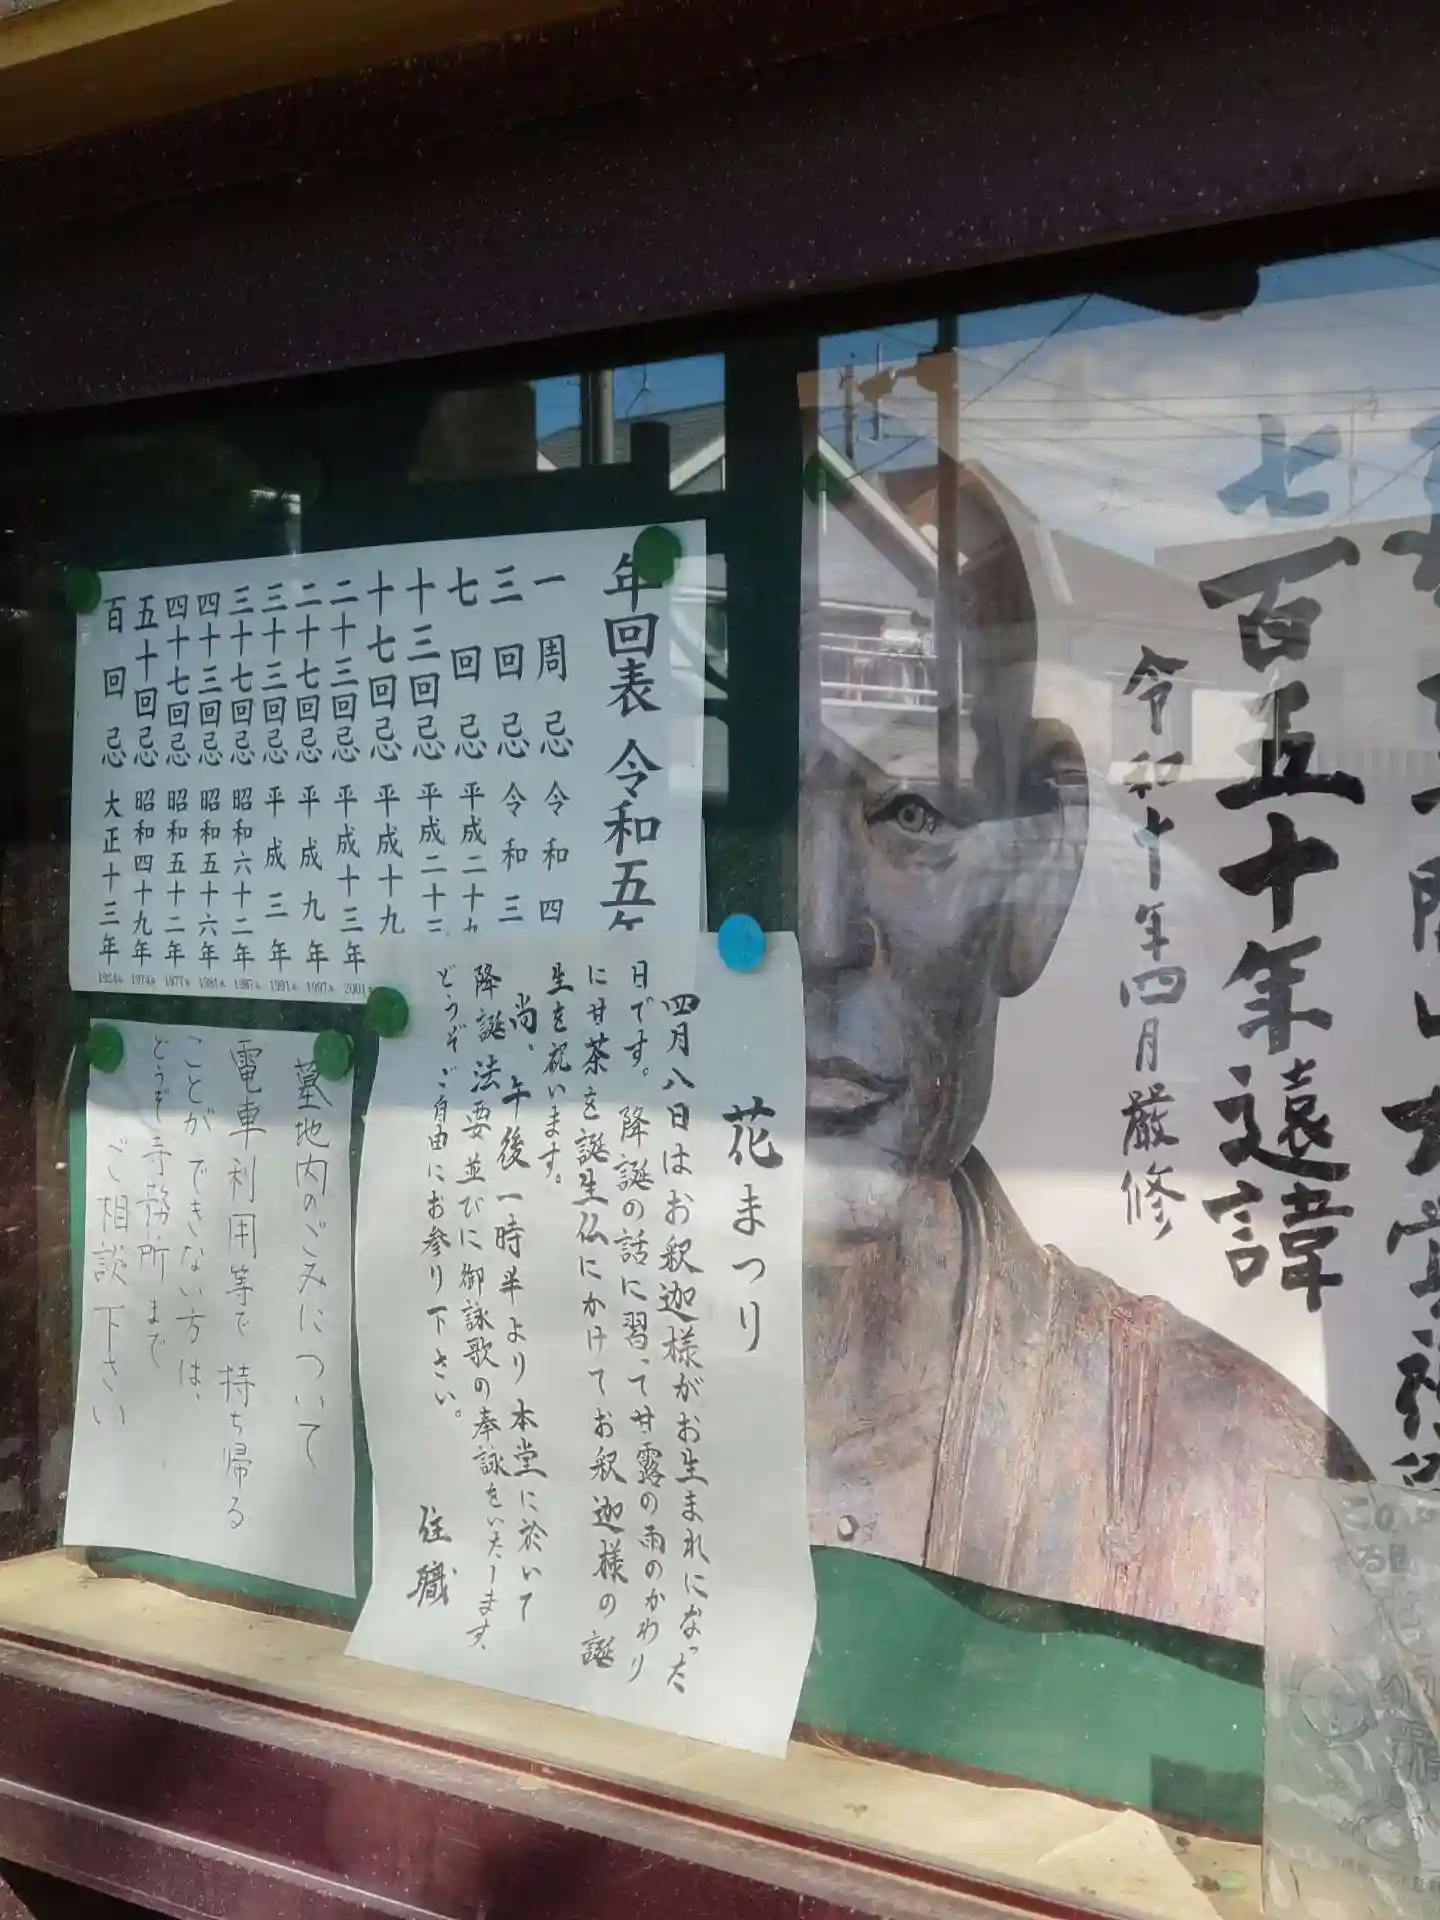 七百五十年遠諱
令和十年四月厳修
年回表 令和五年
一周忌 令和四
三回忌 令和三
七回忌 平成二十九
十三回忌 平成二十三
十七回忌 平成十九
二十三回忌 平成十三年 2001
二十七回忌 平成九年 1997
三十三回忌 平成三年 1991
三十七回忌 昭和六十二年 1987
四十三回忌 昭和五十六年 1981
四十七回忌 昭和五十二年 1977
五十回忌 昭和四十九年 1974
百回忌 大正十三年 1924
花まつり
四月八日はお釈迦様がお生まれになった
日です。降誕の話に習って甘露の雨のかわり
に甘茶を誕生仏にかけてお釈迦様の誕
生を祝います。
尚、午後一時半より本堂に於いて
降誕法要並びに御詠歌の奉詠をいたします。
どうぞご自由にお参り下さい。
住職
墓地内のごみについて
電車利用等で持ち帰る
ことができない方は、
どうぞ寺務所まで
ご相談下さい